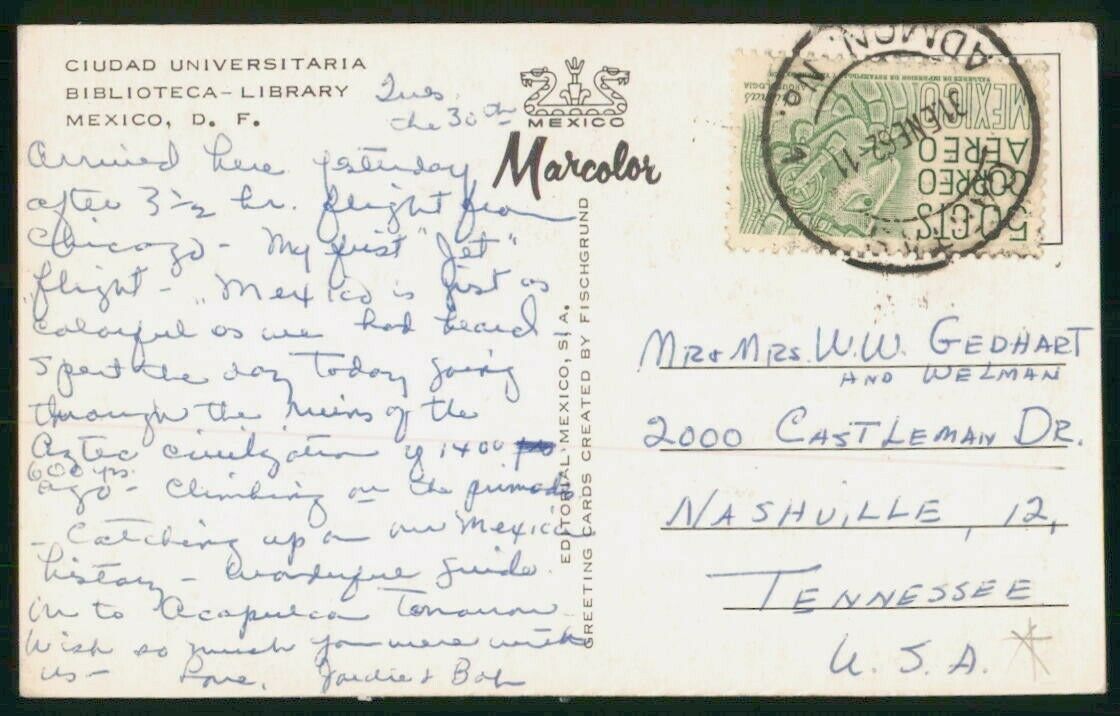 CIUDAD UNIVERSITARIA
BIBLIOTECA - LIBRARY
MEXICO, D. F.
Tues
the 30th
Arrived here yesterday
after 3 1/2 hr. flight from
Chicago - My first "Jet"
flight - Mexico is just as
colorful as we had heard
Spent the day Today going
through the ruins of the
Aztec civilization of 1400
600 yrs.
ago - Climbing on the
- Catching up on our Mexico
history - Wonderful guide
on to Acapulco Tomorrow
Wish so much you were with
us - Love, & Bob
MEXICO
Marcolor
EDITORIAL MEXICO, S. A.
GREETING CARDS CREATED BY FISCHGRUND
50 CTS
CORREO
AEREO
MEXICO
ADMON. No.
31.ENE62-11
MR & MRS. W.W. GEDHART
AND WELMAN
2000 CASTLEMAN DR.
NASHVILLE, 12,
TENNESSEE
U.S.A.